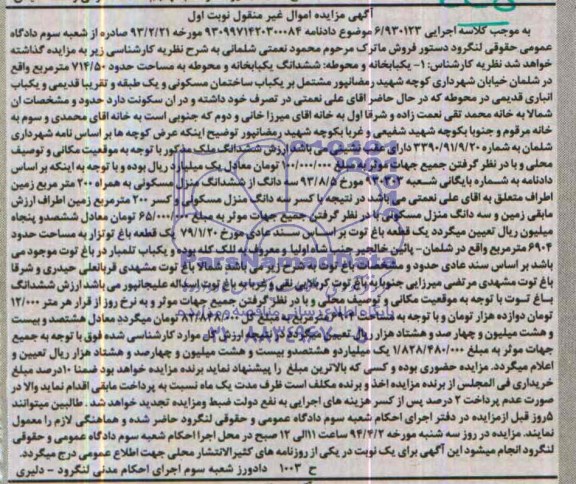 آگهی مزایده اموال غیر منقول نوبت اول
به موجب کلاسه اجرایی ۶/۹۳۰۱۲۳ موضوع دادنامه ۹۳۰۹۹۷۱۴۲۰۳۰۰۰۸۴ مورخه ۹۳/۲/۲۱ صادره از شعبه سوم دادگاه
عمومی حقوقی لنگرود دستور فروش ماترک مرحوم محمود نعمتی شلمانی به شرح نظریه کارشناسی زیر به مزایده گذاشته
خواهد شد نظریه کارشناس: ۱- یکبابخانه و محوطه: ششدانگ یکبابخانه و محوطه به مساحت حدود ۷۱۴/۵۰ مترمربع واقع
در شلمان خیابان شهرداری کوچه شهید رمضانپور مشتمل بر یکباب ساختمان مسکونی و یک طبقه و تقریبا قدیمی و یکباب
انباری قدیمی در محوطه که در حال حاضر اقای علی نعمتی در تصرف خود داشته و در ان سکونت دارد حدود و مشخصات ان
شمالا به خانه محمد تقی نعمت زاده و شرقا اول به خانه اقای میرزا خانی و دوم که جنوبی است به خانه اقای محمدی و سوم به
خانه مرقوم و جنوبا بکوچه شهید شفیعی و غربا بکوچه شهید رمضانپور توضیح اینکه عرض کوچه ها بر اساس نامه شهرداری
شلمان به شماره ۳۳۹۰/۹۱/۹/۲۰ دارای می باشد ارزش ششدانگ ملک مذکور با توجه به موقعیت مکانی و توصیف
محلی و با در نظر گرفتن جمیع جهات موثر به مبلغ ۱۰۰/۰۰۰/۰۰۰ تومان معادل یک میلیارد ریال بوده و با توجه به اینکه بر اساس
دادنامه به شماره بایگانی شعبه ۹۳۰۲۰۳ مورخ ۹۳/۸/۵ سه دانگ از ششدانگ منزل مسکونی به همراه ۲۰۰ متر مربع زمین
اطراف متعلق به اقای علی نعمتی می باشد در نتیجه با کسر سه دانگ منزل مسکونی و کسر ۲۰۰ مترمربع زمین اطراف ارزش
مابقی زمین و سه دانگ منزل مسکونی با در نظر گرفتن جمیع جهات موثر به مبلغ ۶۵/۰۰۰/۰۰۰ تومان معادل ششصدو پنجاه
میلیون ریال تعیین میگردد یک قطعه باغ توت بر اساس سند عادی مورخ ۷۹/۱/۲۰ یک قطعه باغ توتزار به مساحت حدود
۶۹۰۴ مترمربع واقع در شلمان- پائین خالجیر جنب شاه اولیا و معروف به للک کله بود و یکباب تلمبار در باغ توت موجود می
باشد بر اساس سند عادی حدود و مشخصات باغ توت به شرح زیر می باشد شمالا باغ توت مشهدی قربانعلی حیدری و شرقا
باغ توت مشهدی مرتضی میرزایی جنوبا به باغ توت کربلایی نقی و غربا به باغ توت اسداله علیجانپور می باشد ارزش ششدانگ
باغ توت با توجه به موقعیت مکانی و توصیف محلی و با در نظر گرفتن جمیع جهات موثر و به نرخ روز از قرار هر متر ۱۲/۰۰۰
تومان دوازده هزار تومان و با توجه به مساحت ۶۹۰۴ مترمربع به مبلغ کل ۸۲/۸۴۸/۰۰۰ تومان میگردد معادل هشتصد و بیست
و هشت میلیون و چهار صد و هشتاد هزار ریال تعیین میگردد و نتیجه ارزش کل موارد کارشناسی شده فوق با توجه به جمیع
جهات موثر به مبلغ ۱/۸۲۸/۴۸۰/۰۰۰ یک میلیاردو هشتصدو بیست و هشت میلیون و چهارصد و هشتاد هزار ریال تعیین و
اعلام میگردد. مزایده حضوری بوده و کسی که بالاترین مبلغ را پیشنهاد نماید برنده مزایده خواهد بود ضمنا ۱۰درصد مبلغ
خریداری فی المجلس از برنده مزایده اخذ و برنده مکلف است ظرف مدت یک ماه نسبت به پرداخت مابقی اقدام نماید والا در
صورت عدم پرداخت ۲ درصد پس از کسر هزینه های اجرایی به نفع دولت ضبط ومزایده تجدید خواهد شد. طالبین میتوانند
۵روز قبل ازمزایده در دفتر اجرای احکام شعبه سوم دادگاه عمومی و حقوقی لنگرود حاضر شده و هماهنگی لازم را معمول
نمایند. مزایده در روز سه شنبه مورخه ۹۴/۴/۲ ساعت ۱۱الی ۱۲ صبح در محل اجرا احکام شعبه سوم دادگاه عمومی و حقوقی
لنگرود انجام میشود این آگهی برای یک نوبت در یکی از روزنامه های کثیرالانتشار محلی جهت اطلاع عمومی درج میگردد.
ح ۱۰۰۳ دادورز شعبه سوم اجرای احکام مدنی لنگرود - دلیری
ParsNamadData